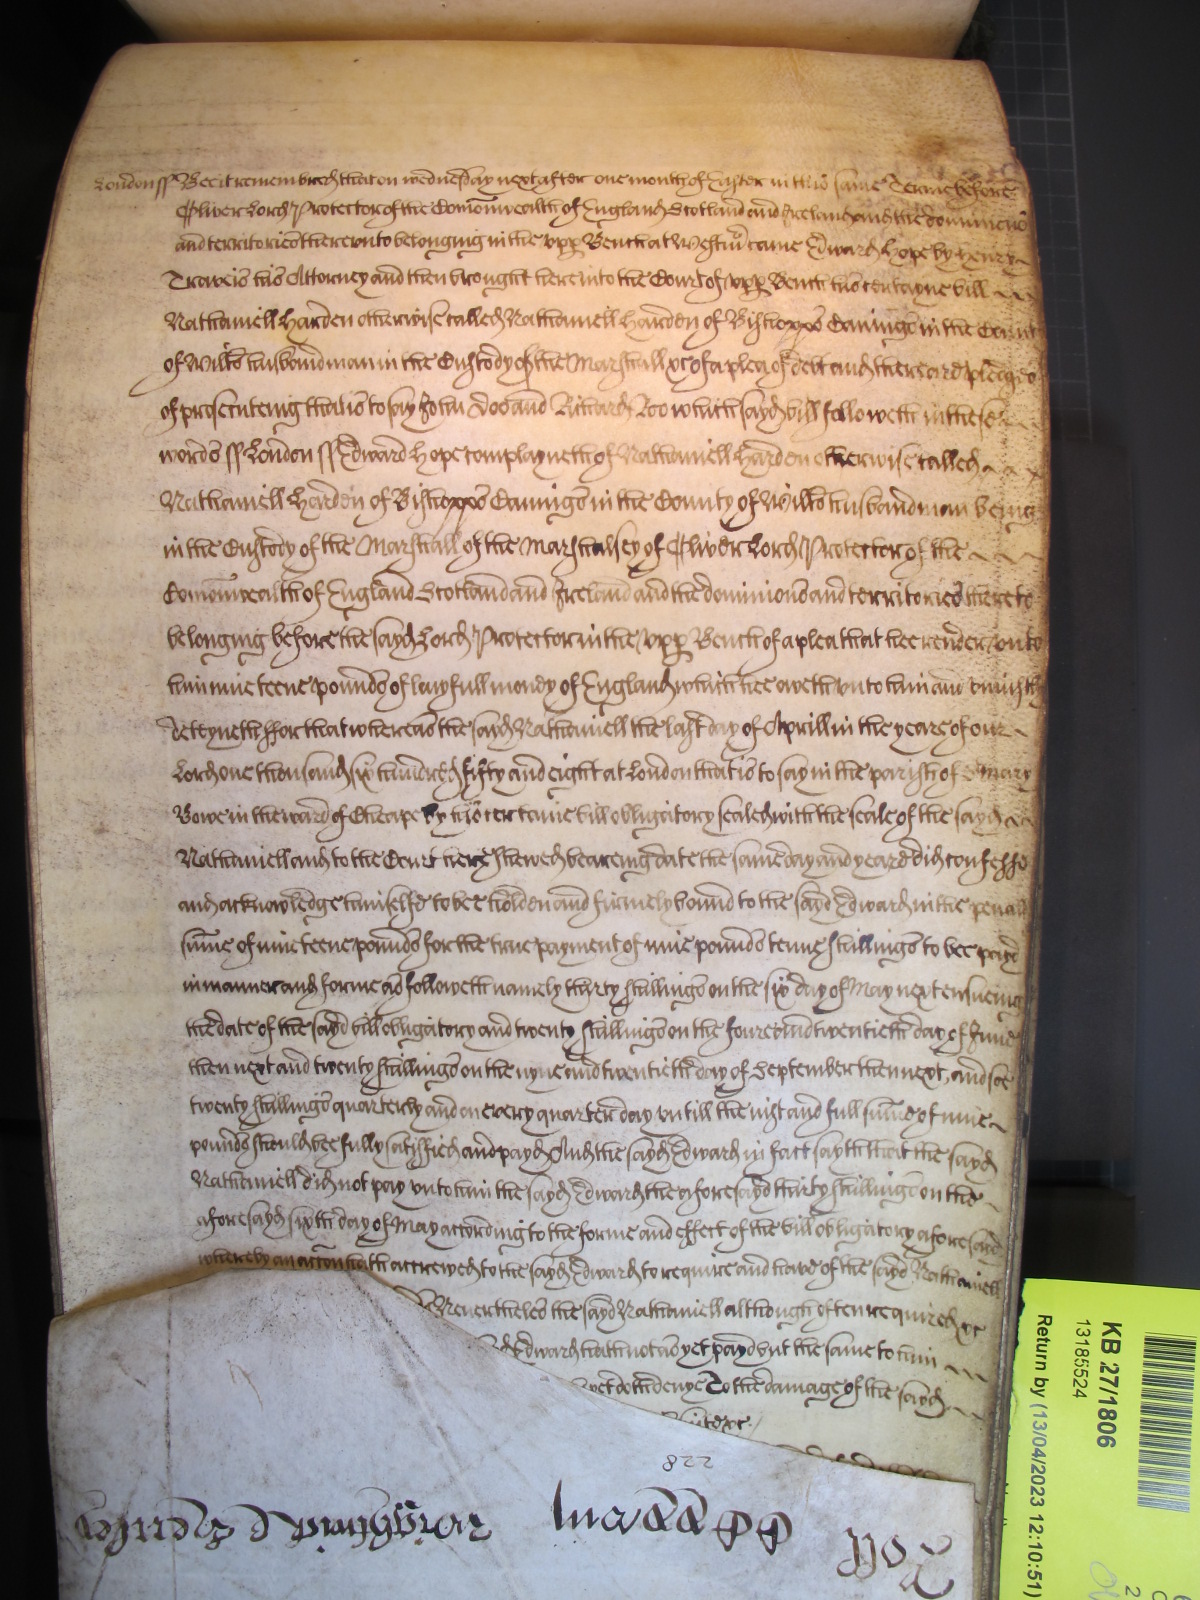 London ss Bee it remembred that on wednesday next after one month of Easter in this same Terme before
Oliver Lord Protector of the Comonwealth of England Scotland and Ireland and the dominions
and territories thereunto belonging in the upp Bench at Westm came Edward Hope by Henry
Traveis his Attorney and then brought here into the Court of upp Bench his certayne bill
Nathaniell Harden otherwise called Nathaniell Harden of Bishopps Canings in the County
of Wilts husbandman in the Custody of the Marshall &c of a plea of debt and there are pledges
of prosecuteing that is to say John Doo and Richard Roo which sayd bill followeth in these
words ss London ss Edward Hope complayneth of Nathaniell Harden otherwise called
Nathaniell Harden of Bishopps Canings in the County of Wilts husbandman being
in the Custody of the Marshall of the Marshalsey of Oliver Lord Protector of the
Comonwealth of England Scotland and Ireland and the dominions and territories thereto
belonging before the sayd Lord Protector in the upp Bench of a plea that hee render unto
him nineteene pounds of lawfull money of England which hee oweth unto him and uniustly
deteyneth ffor that whereas the sayd Nathaniell the last day of Aprill in the yeare of our
Lord one thousand six hundred fifty and eight at London that is to say in the parish of S Mary
Bowe in the ward of Cheape by his certaine bill obligatory sealed with the seale of the sayd
Nathaniell and to the Court here shewed beareing date the same day and yeare did confesse
and acknowledge himselfe to bee holden and firmely bound to the sayd Edward in the penall
sume of nineteene pounds for the true payment of nine pounds tenne shillings to bee payd
in manner and forme as followeth namely thirty shillings on the six day of May next ensueing
the date of the sayd bill obligatory and twenty shillings on the foure and twentieth day of June
then next and twenty shillings on the nyne and twentieth day of September then next, and soe
twenty shillings quarterly and on every quarter day untill the nist and full sume of nine
pounds should bee fully satisfied and payd And the sayd Edward in fact sayth that the sayd
Nathaniell did not pay unto him the sayd Edward the aforesayd thirty shillings on the
aforesayd sixth day of May according to the forme and effect of the bill obligatory aforesaid
whereby an accon hath accrewed to the sayd Edward to require and have of the sayd Nathaniell
Nevertheles the sayd Nathaniell although often required &c
Edward hath not as yet payd but the same to him
yet doth denye To the damage of the sayd
suite &c
822
Roll
KB 27/1806
13185524
Return by (13/04/2023 12:10:51)